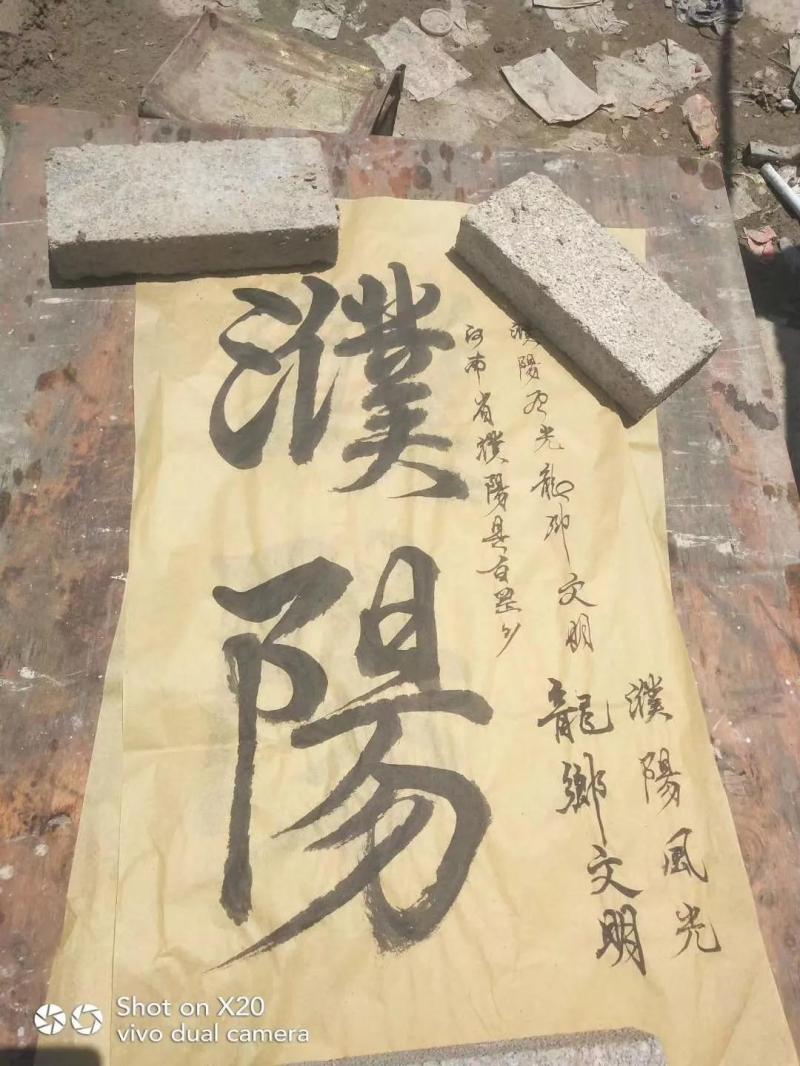 濮陽
濮陽風光
龍鄉文明
濮陽風光龍鄉文明
河南省濮陽县白罡乡
Shot on X20
vivo dual camera